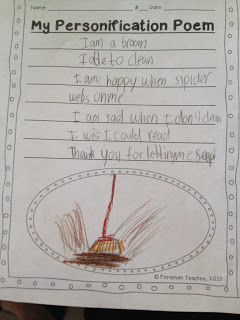 Name: # Date:
My Personification Poem
I am a broom
I to clean
I am happy when spider
webs on me
I am sad when I don't clean
I wis I could read
Thank you for letting me
© Foreman Teaches, 2013